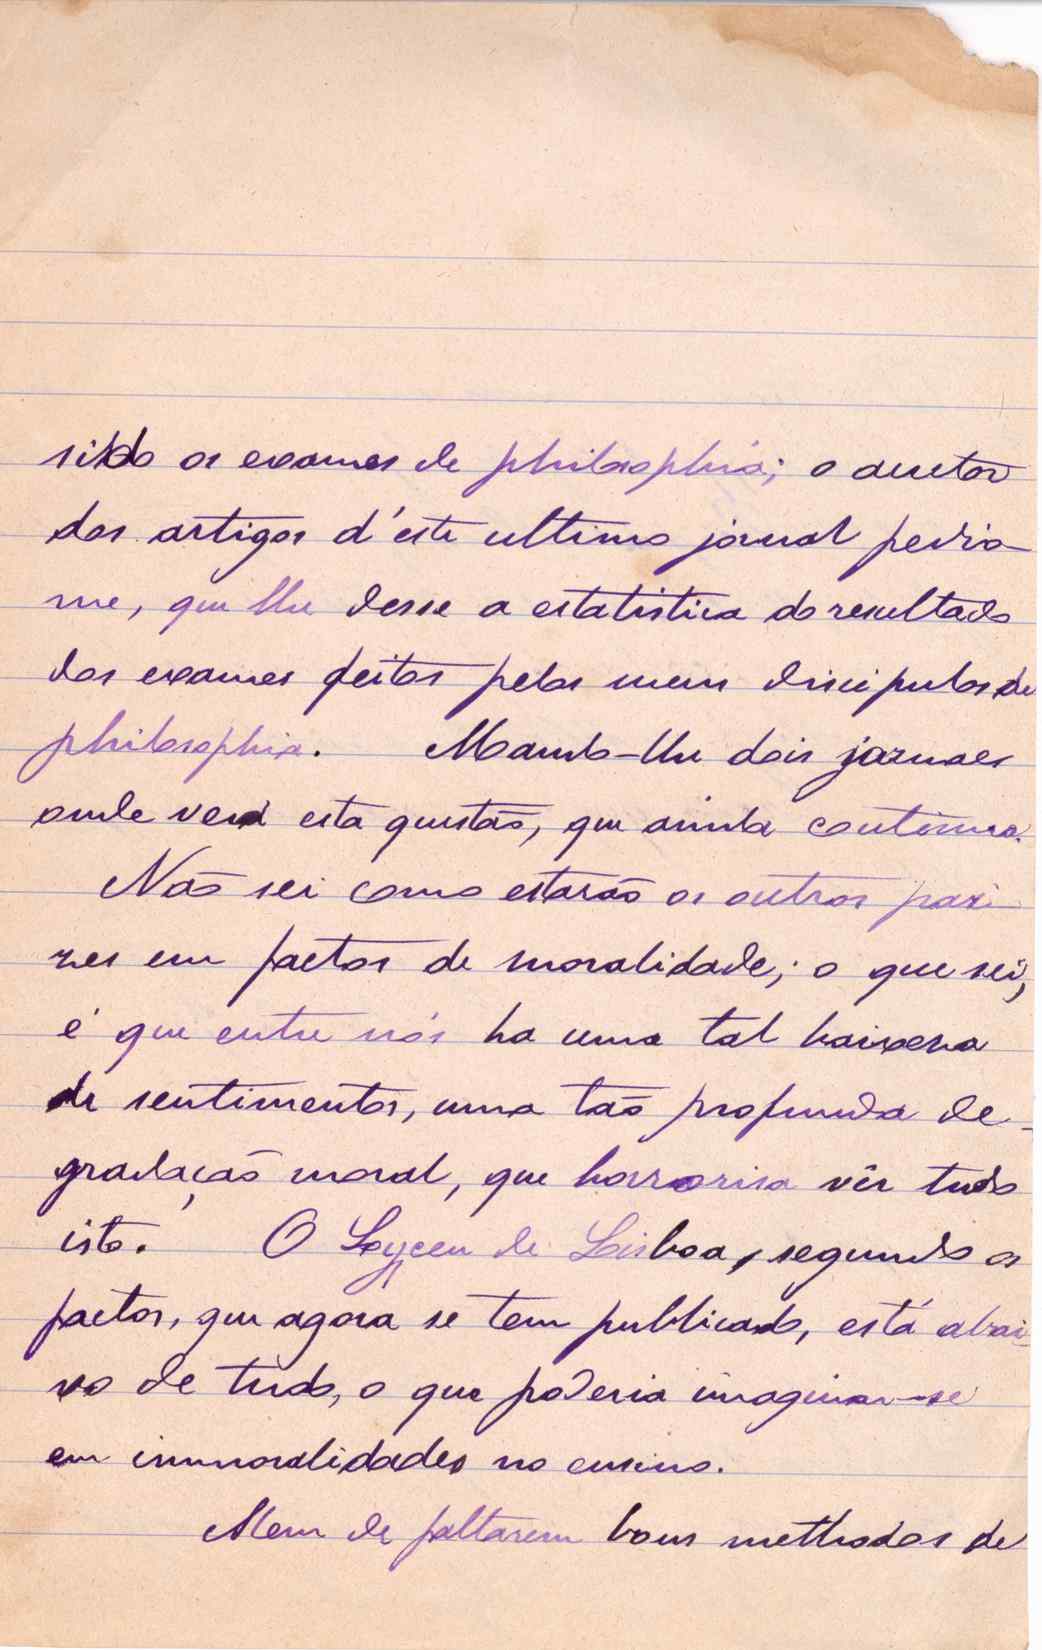 sido os exames de philosophia; o auctor
dos artigos d'este ultimo jornal pedio-
me, que lhe desse a estatistica do resultado
dos exames feitos pelos meus discipulos de
philosophia. Mando-lhe dois jornaes
onde verá esta questão, que ainda continua.
Não sei como estarão os outros pai-
zes em factos de moralidade; o que sei,
é que entre nós ha uma tal baixesa
de sentimentos, uma tão profunda de-
gradação moral, que horrorisa vêr tudo
isto. O Lyceu de Lisboa, segundo os
factos, que agora se tem publicado, está abai-
xo de tudo, o que poderia imaginar-se
em immoralidades no ensino.
Alem de faltarem bons methodos de